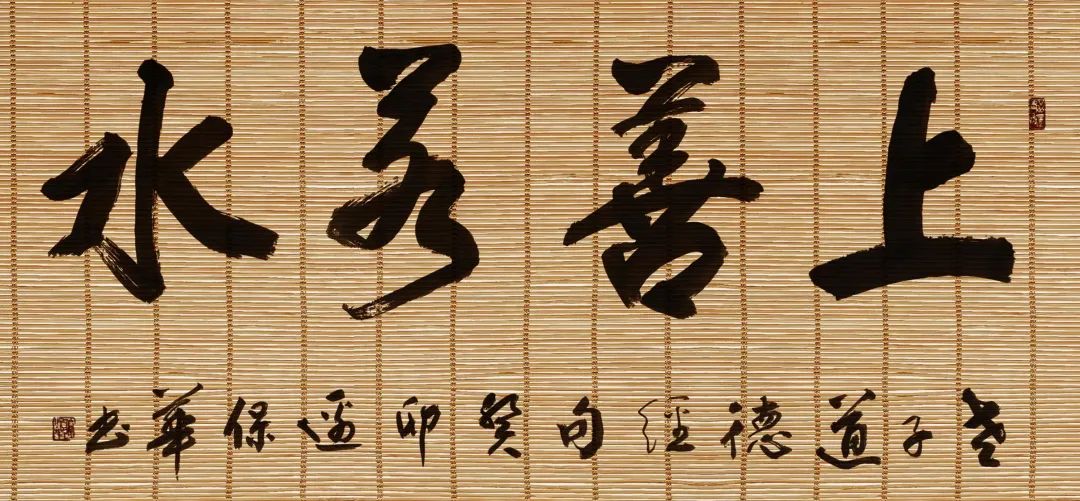 上善若水
老子道德經句癸卯邊保華书